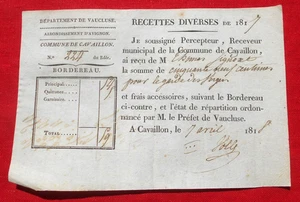 DÉPARTEMENT DE VAUCLUSE.
ARRONDISSEMENT D'AVIGNON.
COMMUNE DE CAVAILLON.
N.° 224 du Rôle.
BORDEREAU.
Principal,
Quittance,
Garnisaire,
TOTAL
RECETTES DIVERSES DE 181
Je soussigné Percepteur, Receveur
municipal de la Commune de Cavaillon,
ai reçu de M.
la somme de cinquante neuf centimes
pour
et frais accessoires, suivant le Bordereau
ci-contre, et l'état de répartition ordon-
nancé par M. le Préfet de Vaucluse.
A Cavaillon, le 7 avril 1818